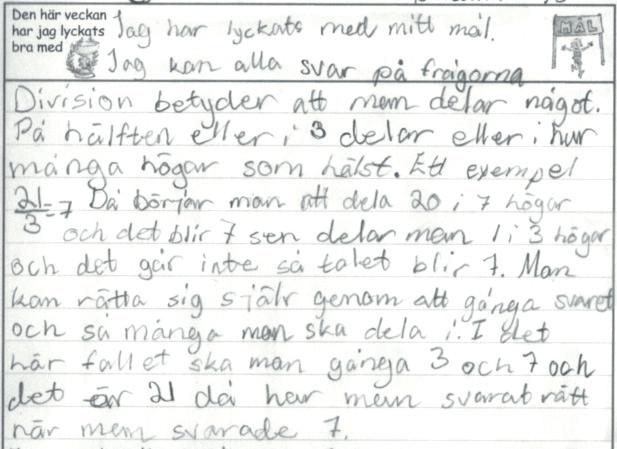 Den här veckan
har jag lyckats
bra med
Jag har lyckats med mitt mål.
Jag kan alla svar på frågorna
MÅL
Division betyder att man delar något.
På hälften eller i 3 delar eller i hur
många högar som hälst. Ett exempel
21/3=7 Då börjar man att dela 20 i 7 högar
och det blir 7 sen delar man 1 i 3 högar
och det går inte så talet blir 7. Man
kan rätta sig själv genom att gånga svaret
och så många man ska dela i. I det
här fallet ska man gånga 3 och 7 och
det är 21 då har man svarat rätt
när man svarade 7.